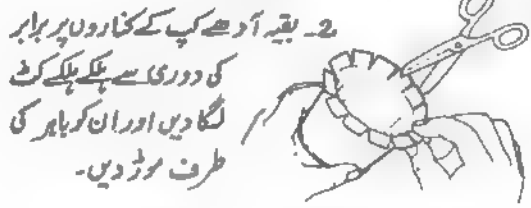 2۔ بقیہ آدھے کپ کے کناروں پر برابر
کی دوری سے ہلکے ہلکے کٹ
لگا دیں اور ان کو باہر کی
طرف موڑ دیں۔